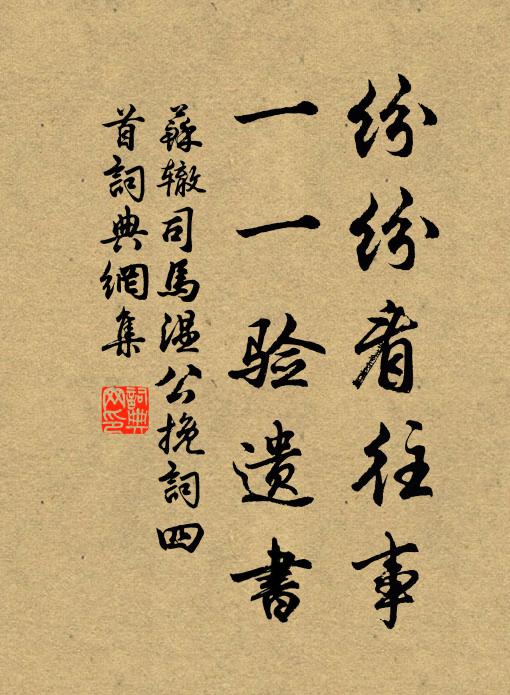 纷纷看往事
一一验遗書
蘇辙司馬温公挽詞四
首詞典網集
詞典網印